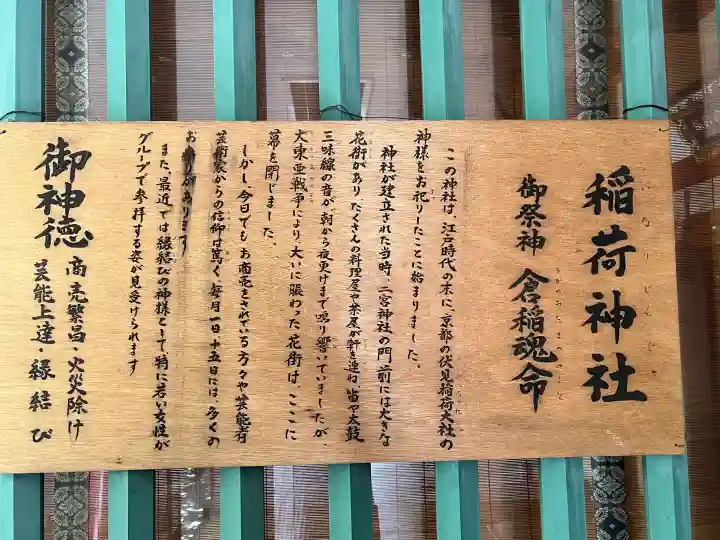 稲荷神社
いなりじんじゃ
御祭神 倉稲魂命
うかのみたまのみこと
この神社は、江戸時代の末に、京都の伏見稲荷大社の
神様をお祀りしたことに始まりました。
神社が建立された当時、二宮神社の門前には大きな
花街があり、たくさんの料理屋や茶屋が軒を連ね、笛や太鼓
三味線の音が、朝から夜更けまで鳴り響いていましたが、
大東亜戦争により、大いに賑わった花街は、ここに
幕を閉じました。
しかし今日でも、お商売をされている方々や芸能者
芸術家からの信仰は篤く、毎月一日、十五日には、多くの
お参りがあります
また、最近では縁結びの神様として、特に若い女性が
グループで参拝する姿が見受けられます
御神徳 商売繁昌・火災除け
芸能上達・縁結び